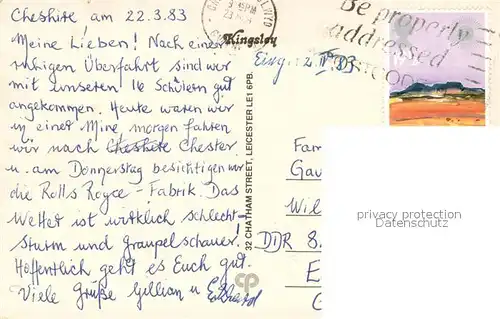 Cheshire am 22.3.83
Meine Lieben! Nach einer
ruhigen Überfahrt sind wir
mit unseren 16 Schülern gut
angekommen. Heute waren wir
in einer Mine morgen fahren
wir nach Cheshire Chester
u. am Donnerstag besichtigen wir
die Rolls Royce - Fabrik. Das
Wetter ist wirklich schlecht -
Sturm und Graupelschauer!
Hoffentlich geht es Euch gut.
Viele Grüße Gillian u.
Kingsley
32 CHATHAM STREET, LEICESTER LE1 6PB.
Be properly
addressed
POSTCODE
Fam
Gau
Wil
DDR 8.
E
privacy protection
Datenschutz
cp